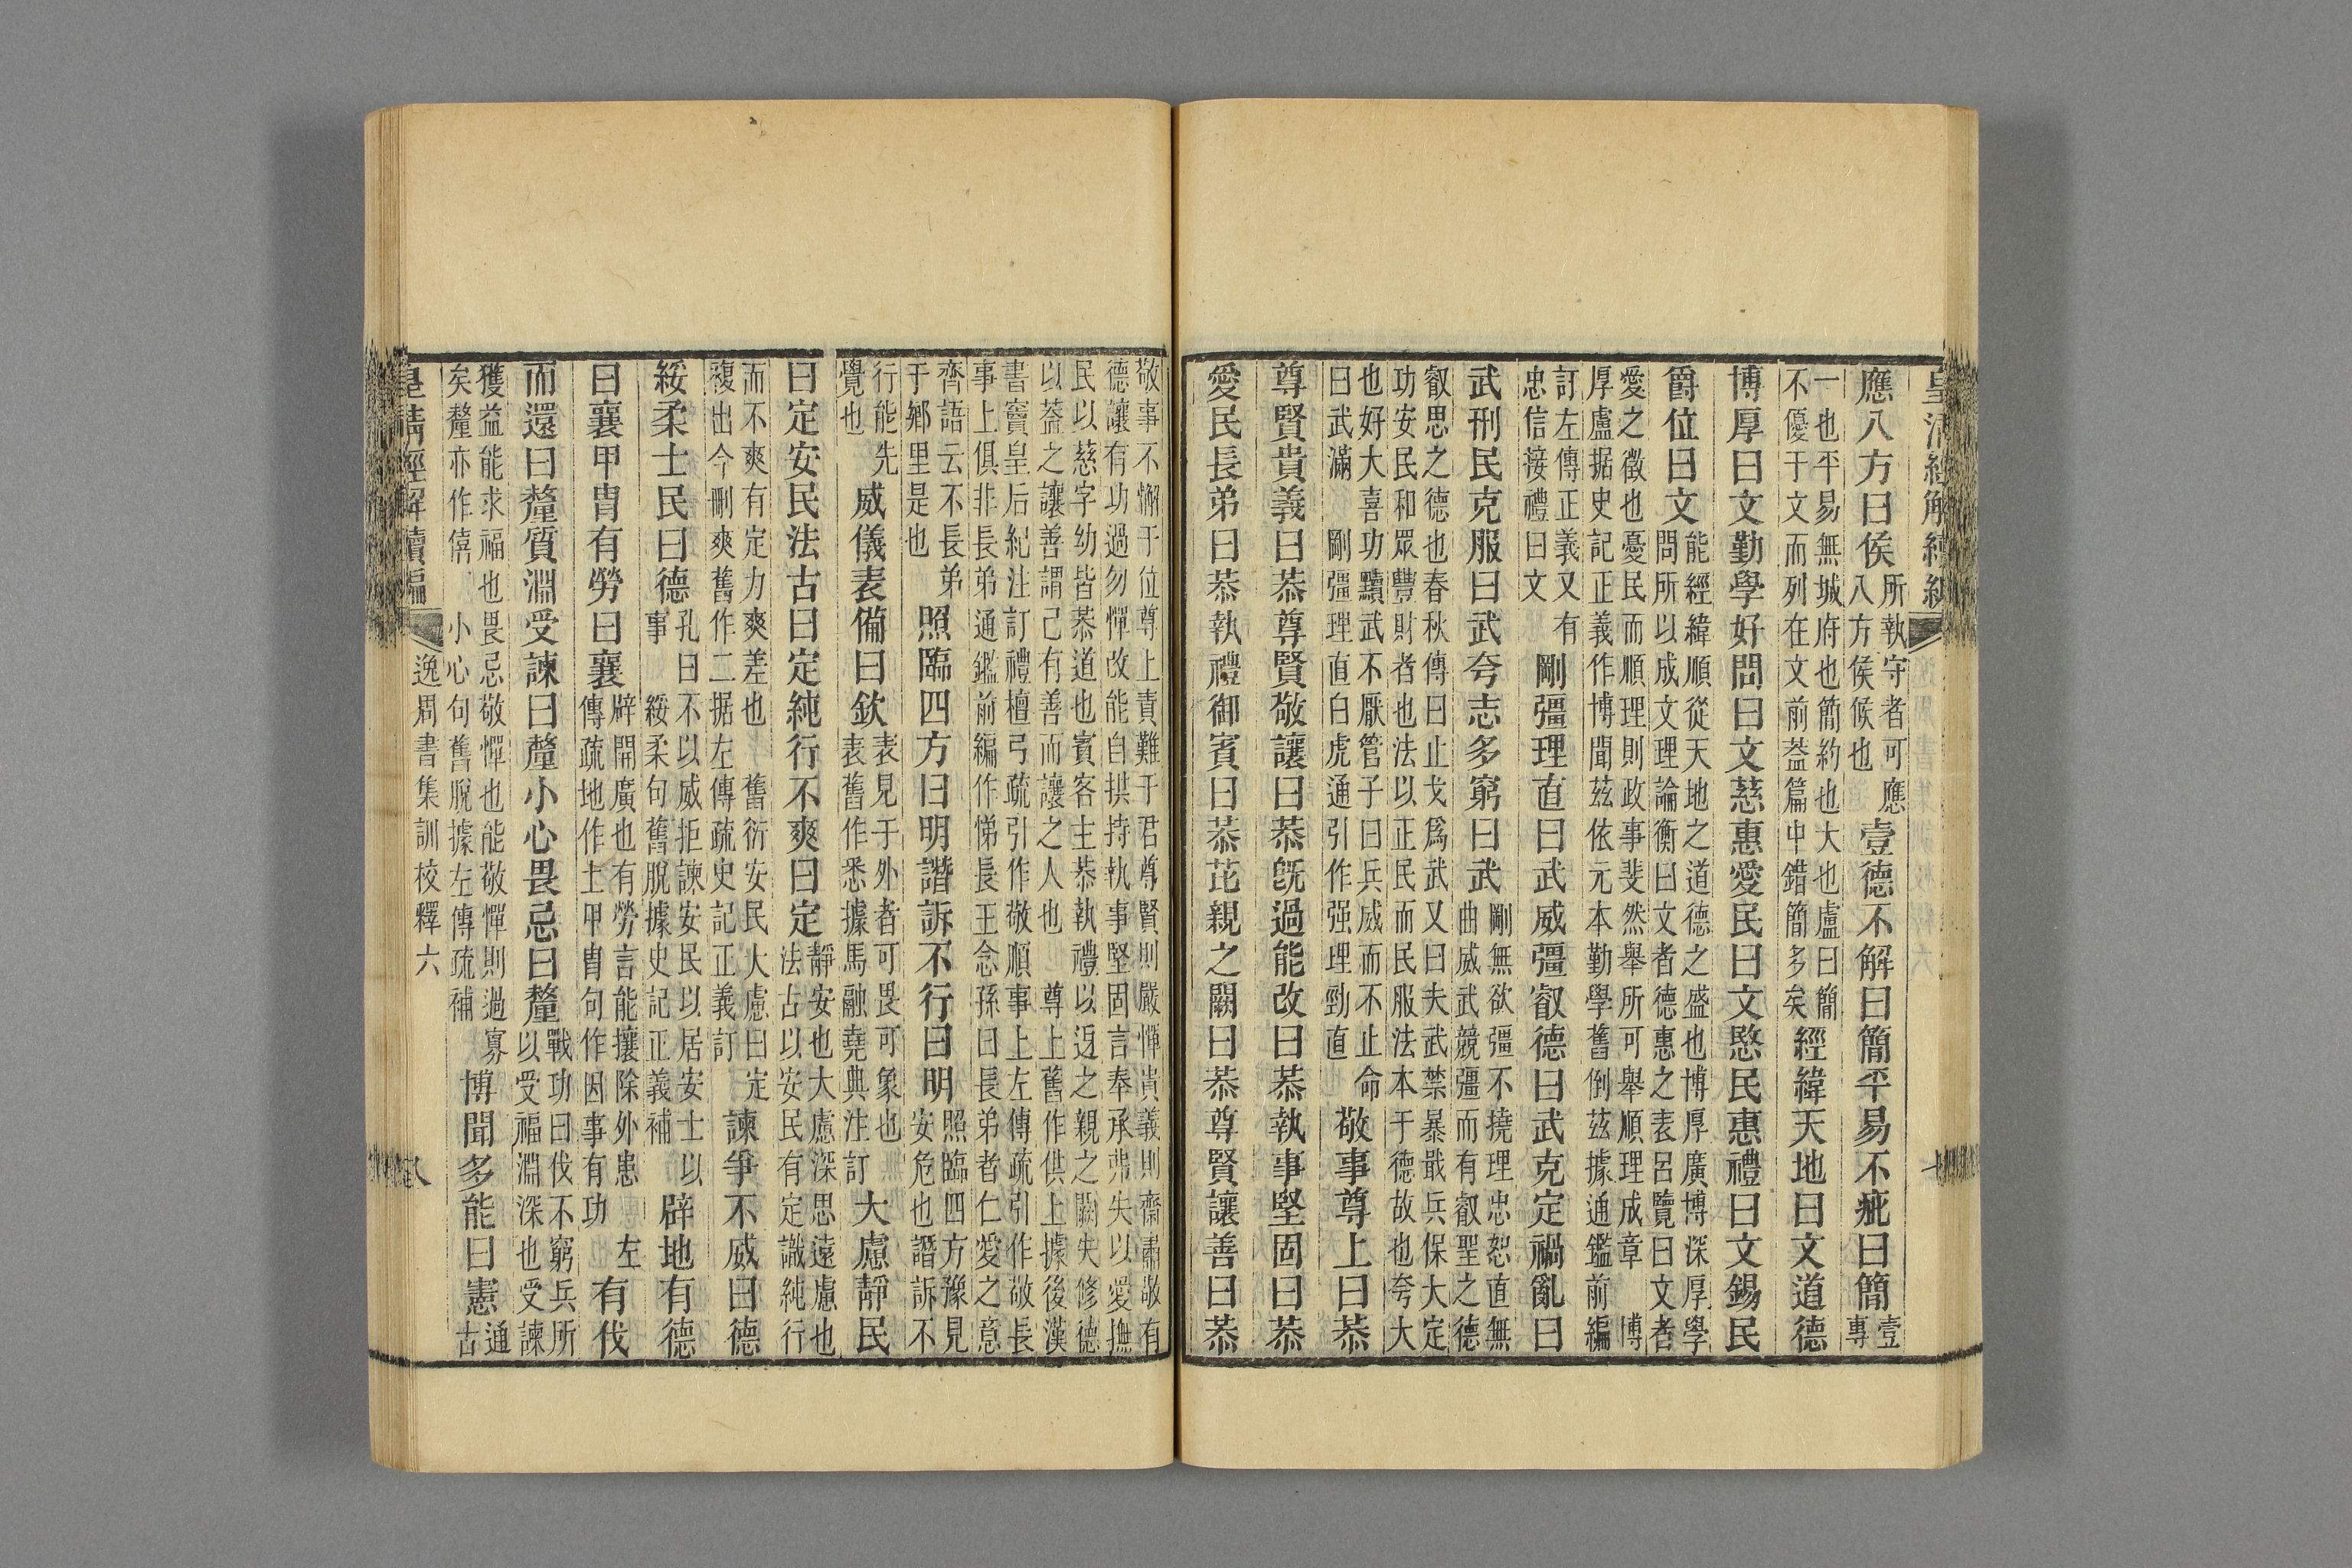 皇清經解續編
應八方曰侯所執守者可應八方侯候也壹德不解曰簡平易不疵曰簡壹專
一也平易無城府也簡約也大也盧曰簡不優于文而列在文前葢篇中錯簡多矣經緯天地曰文道德
博厚曰文勤學好問曰文慈惠愛民曰文愍民惠禮曰文錫民
爵位曰文能經緯順從天地之道德之盛也博厚廣博深厚學問所以成文理論衡曰文者德惠之表呂覽曰文者
愛之徵也憂民而順理則政事斐然舉所可舉順理成章　博厚盧据史記正義作博聞茲依元本勤學舊倒茲據通鑑前編
訂左傳正義又有忠信接禮曰文剛彊理直曰武威彊叡德曰武克定禍亂曰
武刑民克服曰武夸志多窮曰武剛無欲彊不撓理忠恕直無曲威武競彊而有叡聖之德
叡思之德也春秋傳曰止戈爲武又曰夫武禁暴戢兵保大定功安民和眾豐財者也法以正民而民服法本于德故也夸大
也好大喜功黷武不厭管子曰兵威而不止命曰武滿　剛彊理直白虎通引作强理勁直敬事尊上曰恭
尊賢貴義曰恭尊賢敬讓曰恭旣過能改曰恭執事堅固曰恭
愛民長弟曰恭執禮御賓曰恭芘親之闕曰恭尊賢讓善曰恭
敬事不懈于位尊上責難于君尊賢則嚴憚貴義則齋肅敬有德讓有功過勿憚改能自拱持執事堅固言奉承弗失以愛撫
民以慈字幼皆恭道也賓客主恭執禮以迓之親之闕失修德以葢之讓善謂己有善而讓之人也　尊上舊作供上據後漢
書竇皇后紀注訂禮檀弓疏引作敬順事上左傳疏引作敬長事上俱非長弟通鑑前編作悌長王念孫曰長弟者仁愛之意
齊語云不長弟于鄉里是也照臨四方曰明譖訴不行曰明照臨四方豫見安危也譖訴不
行能先覺也威儀表備曰欽表見于外者可畏可象也表舊作悉據馬融堯典注訂大慮靜民
曰定安民法古曰定純行不爽曰定靜安也大慮深思遠慮也法古以安民有定識純行
而不爽有定力爽差也　舊衍安民大慮曰定複出今刪爽舊作二据左傳疏史記正義訂諫爭不威曰德
綏柔士民曰德孔曰不以威拒諫安民以居安士以事　綏柔句舊脫據史記正義補辟地有德
曰襄甲冑有勞曰襄辟開廣也有勞言能攘除外患　左傳疏地作土甲冑句作因事有功有伐
而還曰釐質淵受諫曰釐小心畏忌曰釐戰功曰伐不窮兵所以受福淵深也受諫
獲益能求福也畏忌敬憚也能敬憚則過寡矣釐亦作僖　小心句舊脫據左傳疏補博聞多能曰憲通古
皇清經解續編　逸周書集訓校釋六　八